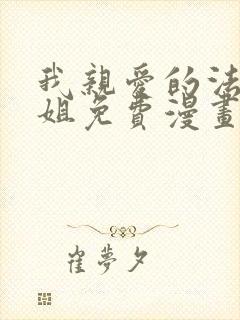 我親愛的法
姐免費漫畫
崔夢夕